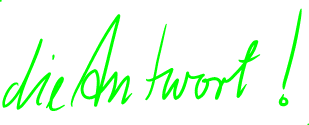 die Antwort!